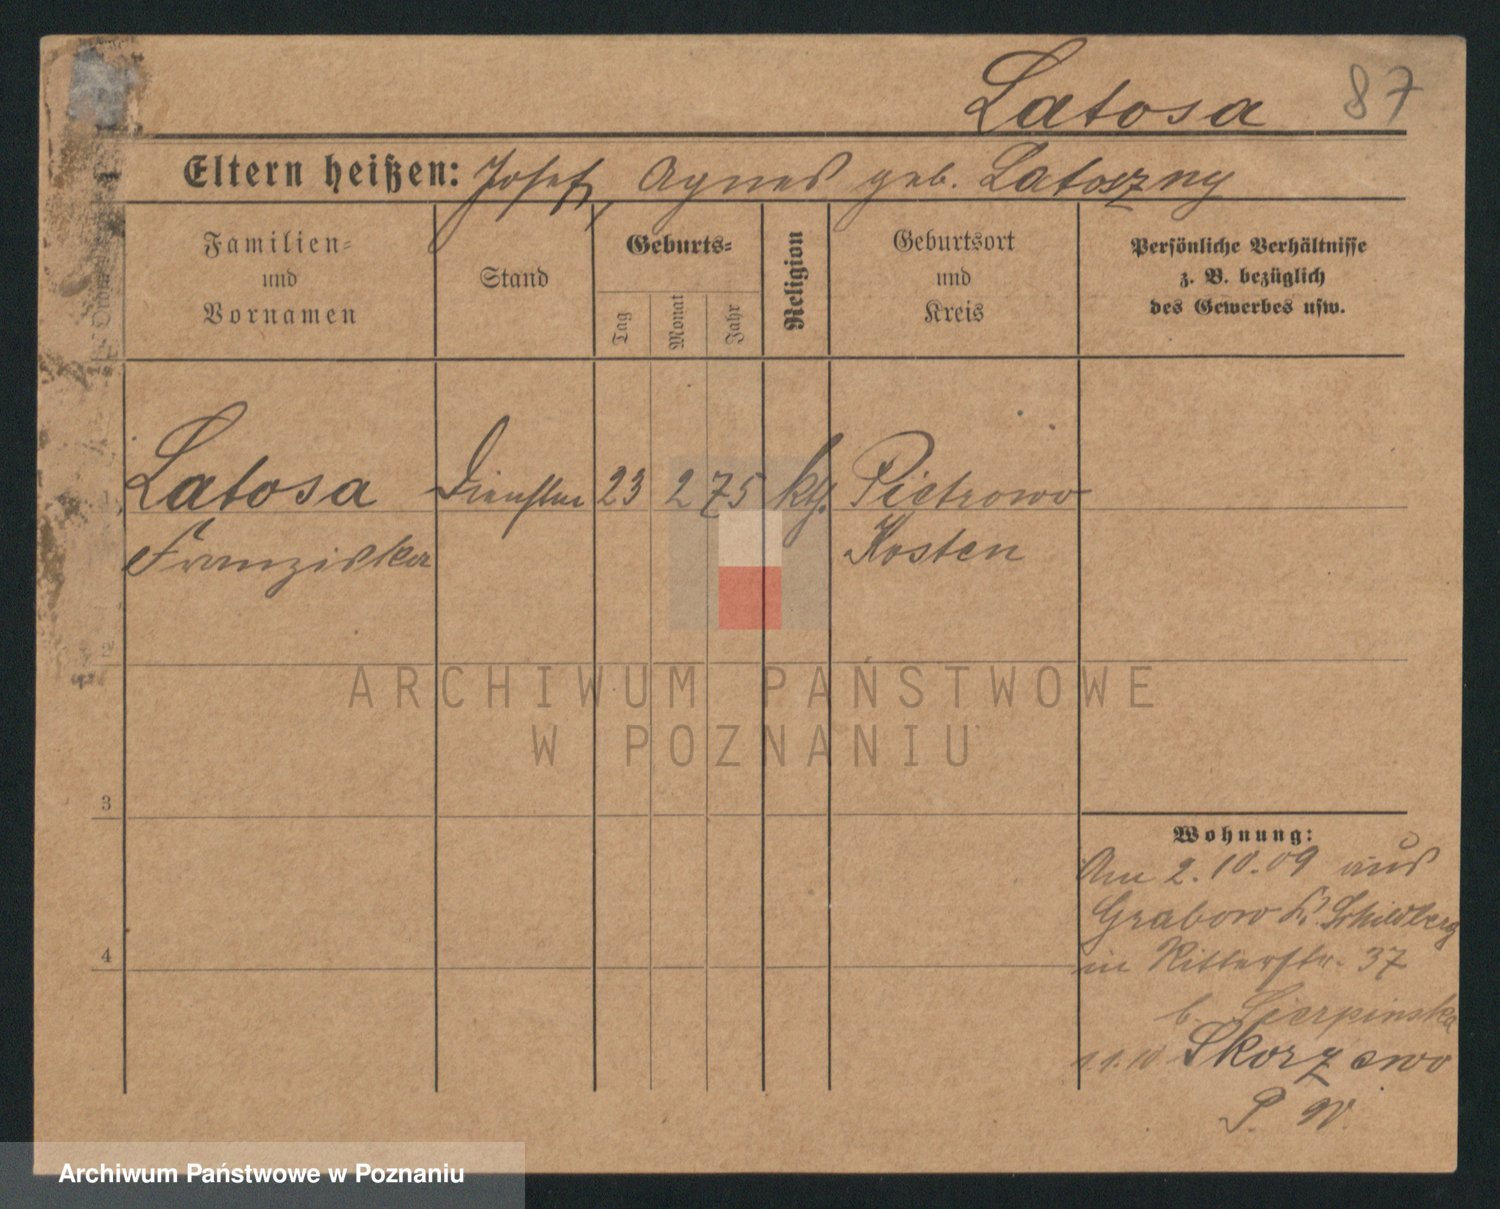 Latosa 87
Eltern heißen: Josef, Agnes geb. Latoszny
Familien-
und
Vornamen
Stand
Geburts-
Tag
Monat
Jahr
Religion
Geburtsort
und
Kreis
Persönliche Verhältnisse
z. B. bezüglich
des Gewerbes usw.
Latosa
Franziska
23
2
75
kth.
Pietrowo
Kosten
2
3
4
Wohnung:
Am 2.10.09 aus
Grabow Kr. Schildberg
in Ritterstr. 37
b. Sierpinska
1.1.10 Skorzewo
P. W.
ARCHIWUM PAŃSTWOWE
W POZNANIU
Archiwum Państwowe w Poznaniu